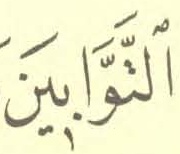 ٱلتَّوَّٰبِينَ